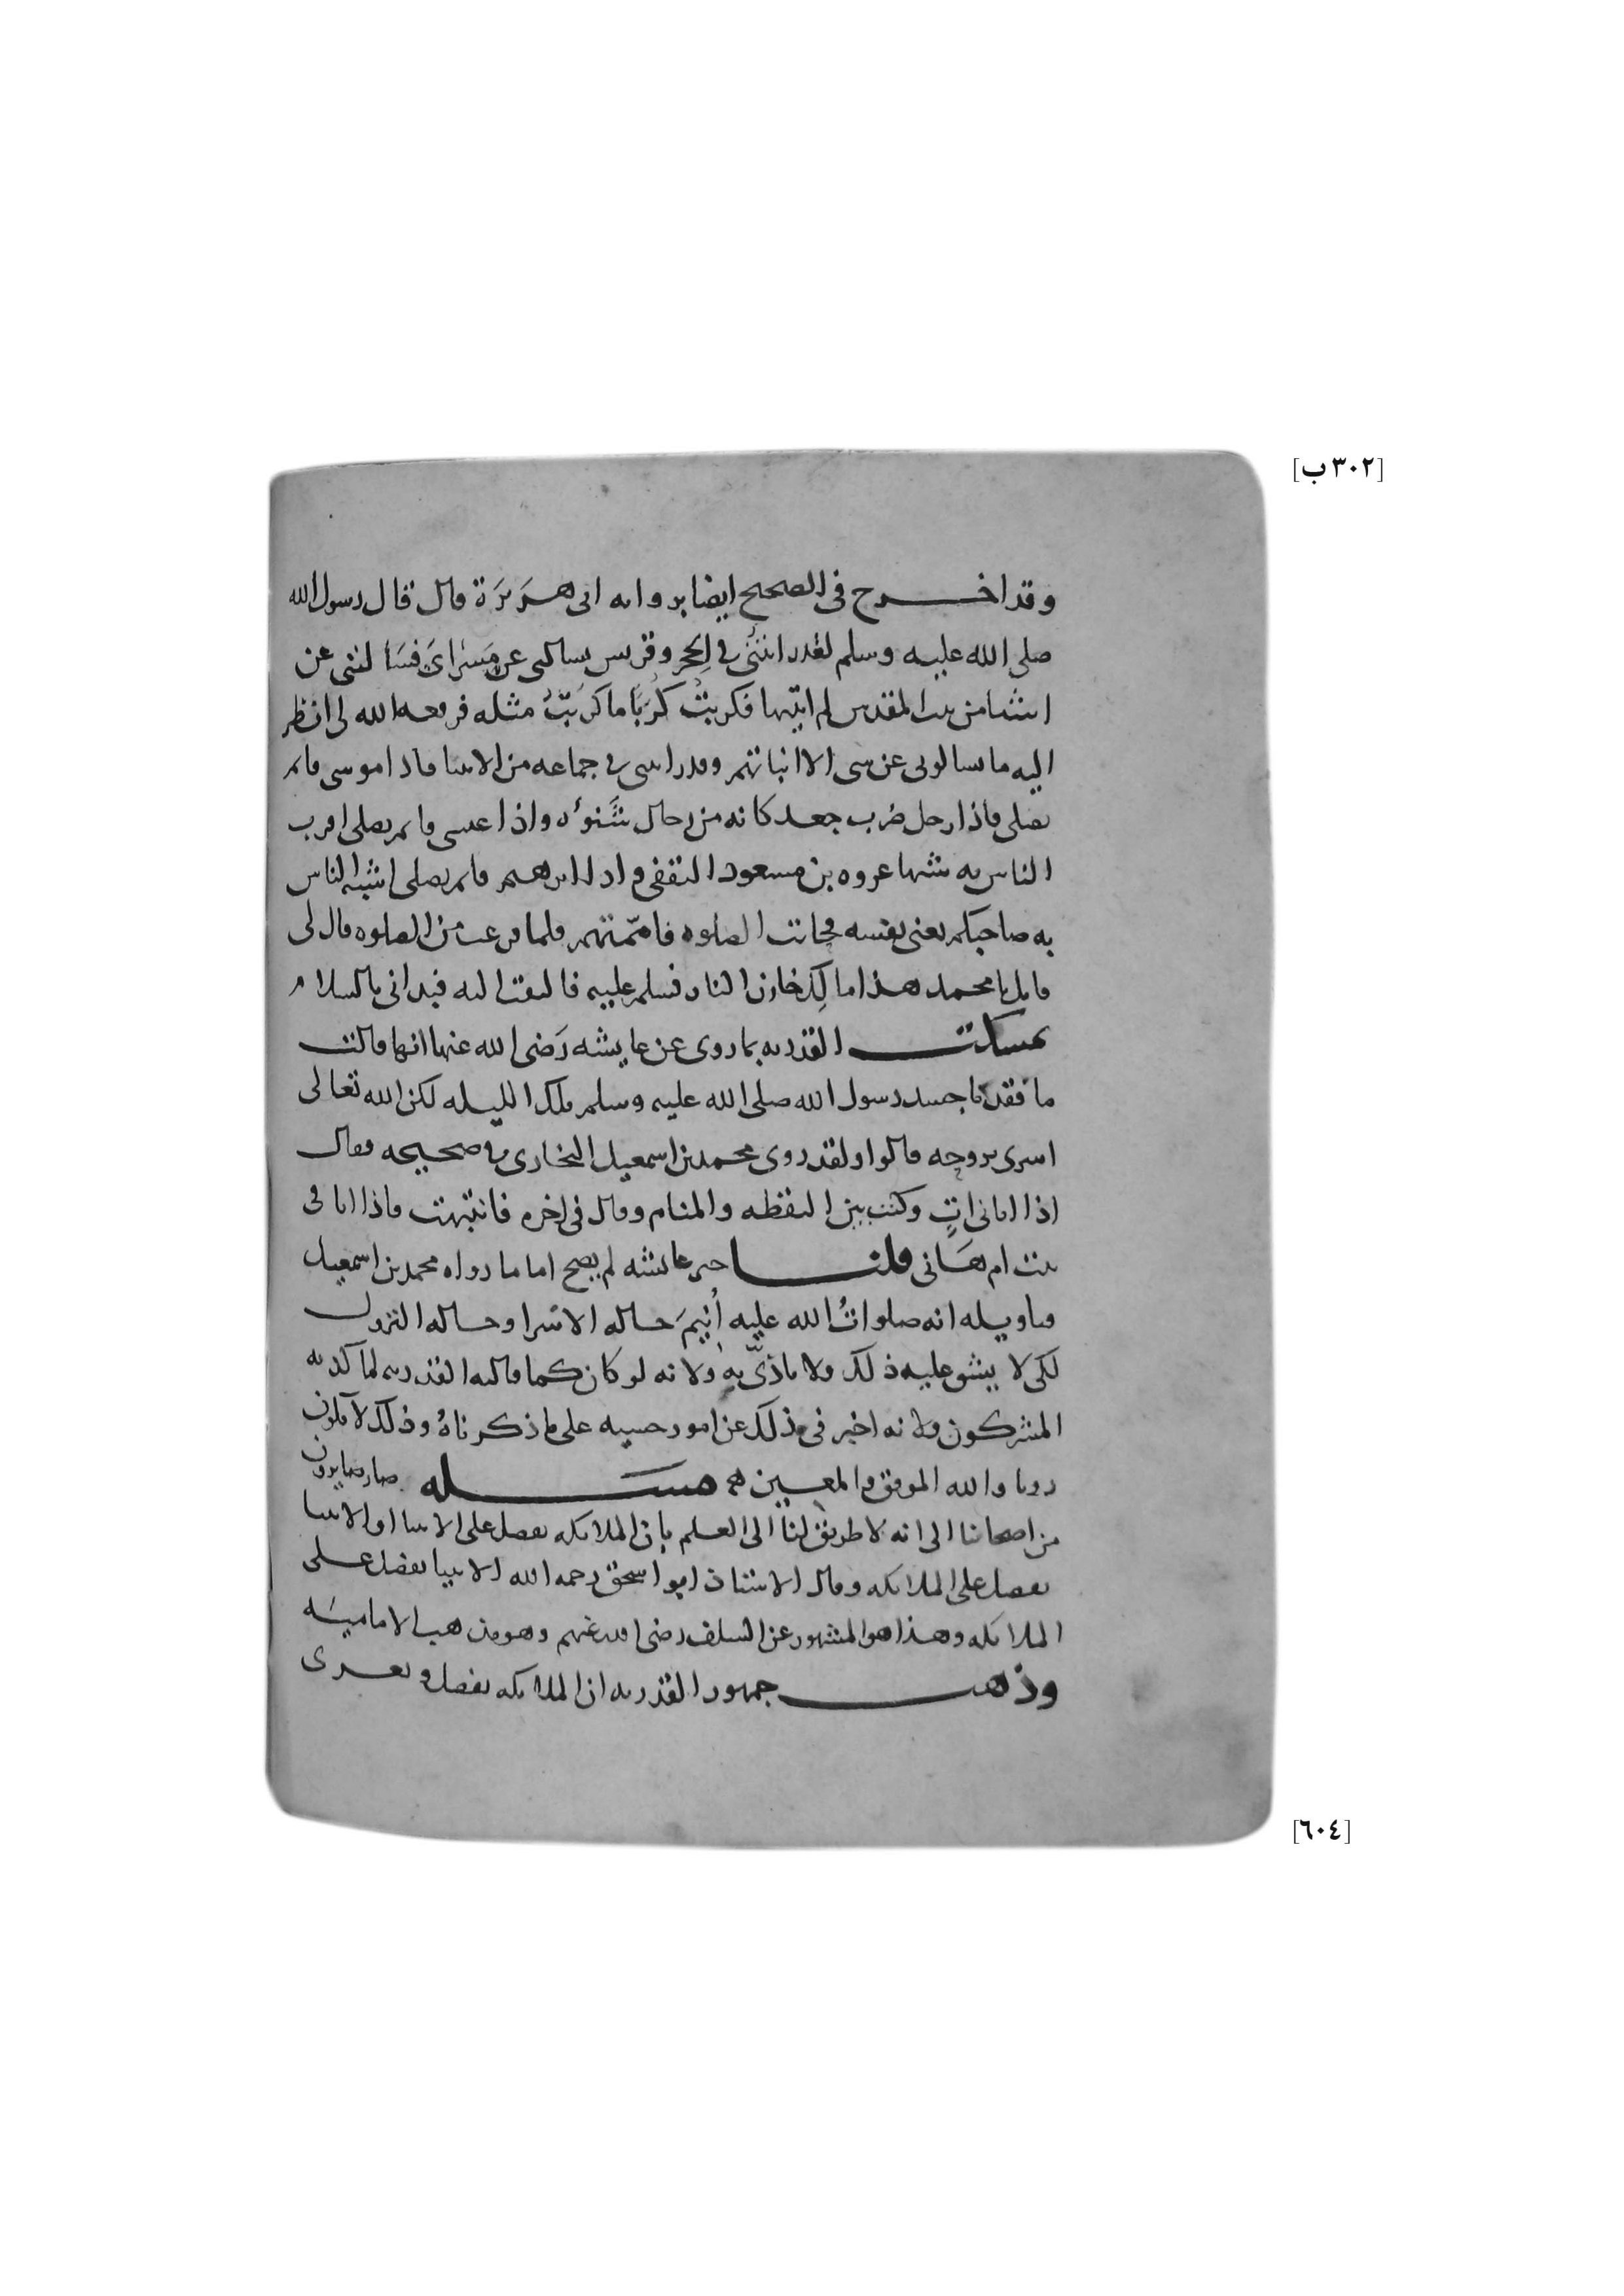 [٣٠٢ ب]
وقد اخرج في الصحيح ايضا برواية ابي هريرة قال قال رسول الله
صلى الله عليه وسلم لقد رايتني في الحجر وقريش يسالني عن مسراي فسالتني عن
اشيا من بيت المقدس لم اثبتها فكربت كربا ما كربت مثله فرفعه الله لي انظر
اليه ما يسالوني عن شي الا انباتهم وقد رايتني في جماعه من الانبيا فاذا موسى قايم
يصلي فاذا رجل ضرب جعد كانه من رجال شنوءه واذا عيسى قايم يصلي اقرب
الناس به شبها عروه بن مسعود الثقفي واذا ابرهيم قايم يصلي اشبه الناس
به صاحبكم يعني نفسه فحانت الصلوه فاممتهم فلما فرغت من الصلوه قال لي
قايل يا محمد هذا مالك خازن النار فسلم عليه فالتفت اليه فبداني بالسلام
تمسكت القدريه بما روي عن عايشه رضى الله عنها انها قالت
ما فقدنا جسد رسول الله صلى الله عليه وسلم تلك الليله لكن الله تعالى
اسرى بروحه قالوا ولقد روى محمد بن اسمعيل البخارى في صحيحه فقال
اذا اتاني ات وكنت بين اليقظه والمنام وقال في اخره فانتبهت فاذا انا في
بيت ام هاني قلنا خبر عايشه لم يصح اما ما رواه محمد بن اسمعيل
فتاويله انه صلوات الله عليه انيم حاله الاسرا وحاله النزول
لكي لا يشق عليه ذلك ولا يتاذى به ولانه لو كان كما قالته القدريه لما كذبه
المشركون ولانه اخبر في ذلك عن امور حسيه على ما ذكرناه وذلك لا يكون
رويا والله الموفق والمعين مسله صار صايرون
من اصحابنا الى انه لا طريق لنا الى العلم بان الملايكه تفضل على الانبيا او الانبيا
تفضل على الملايكه وقال الاستاذ ابو اسحق رحمه الله الانبيا تفضل على
الملايكه وهذا هو المشهور عن السلف رضى الله عنهم وهو مذهب الاماميه
وذهب جمهور القدريه ان الملايكه تفضل
[٦٠٤]